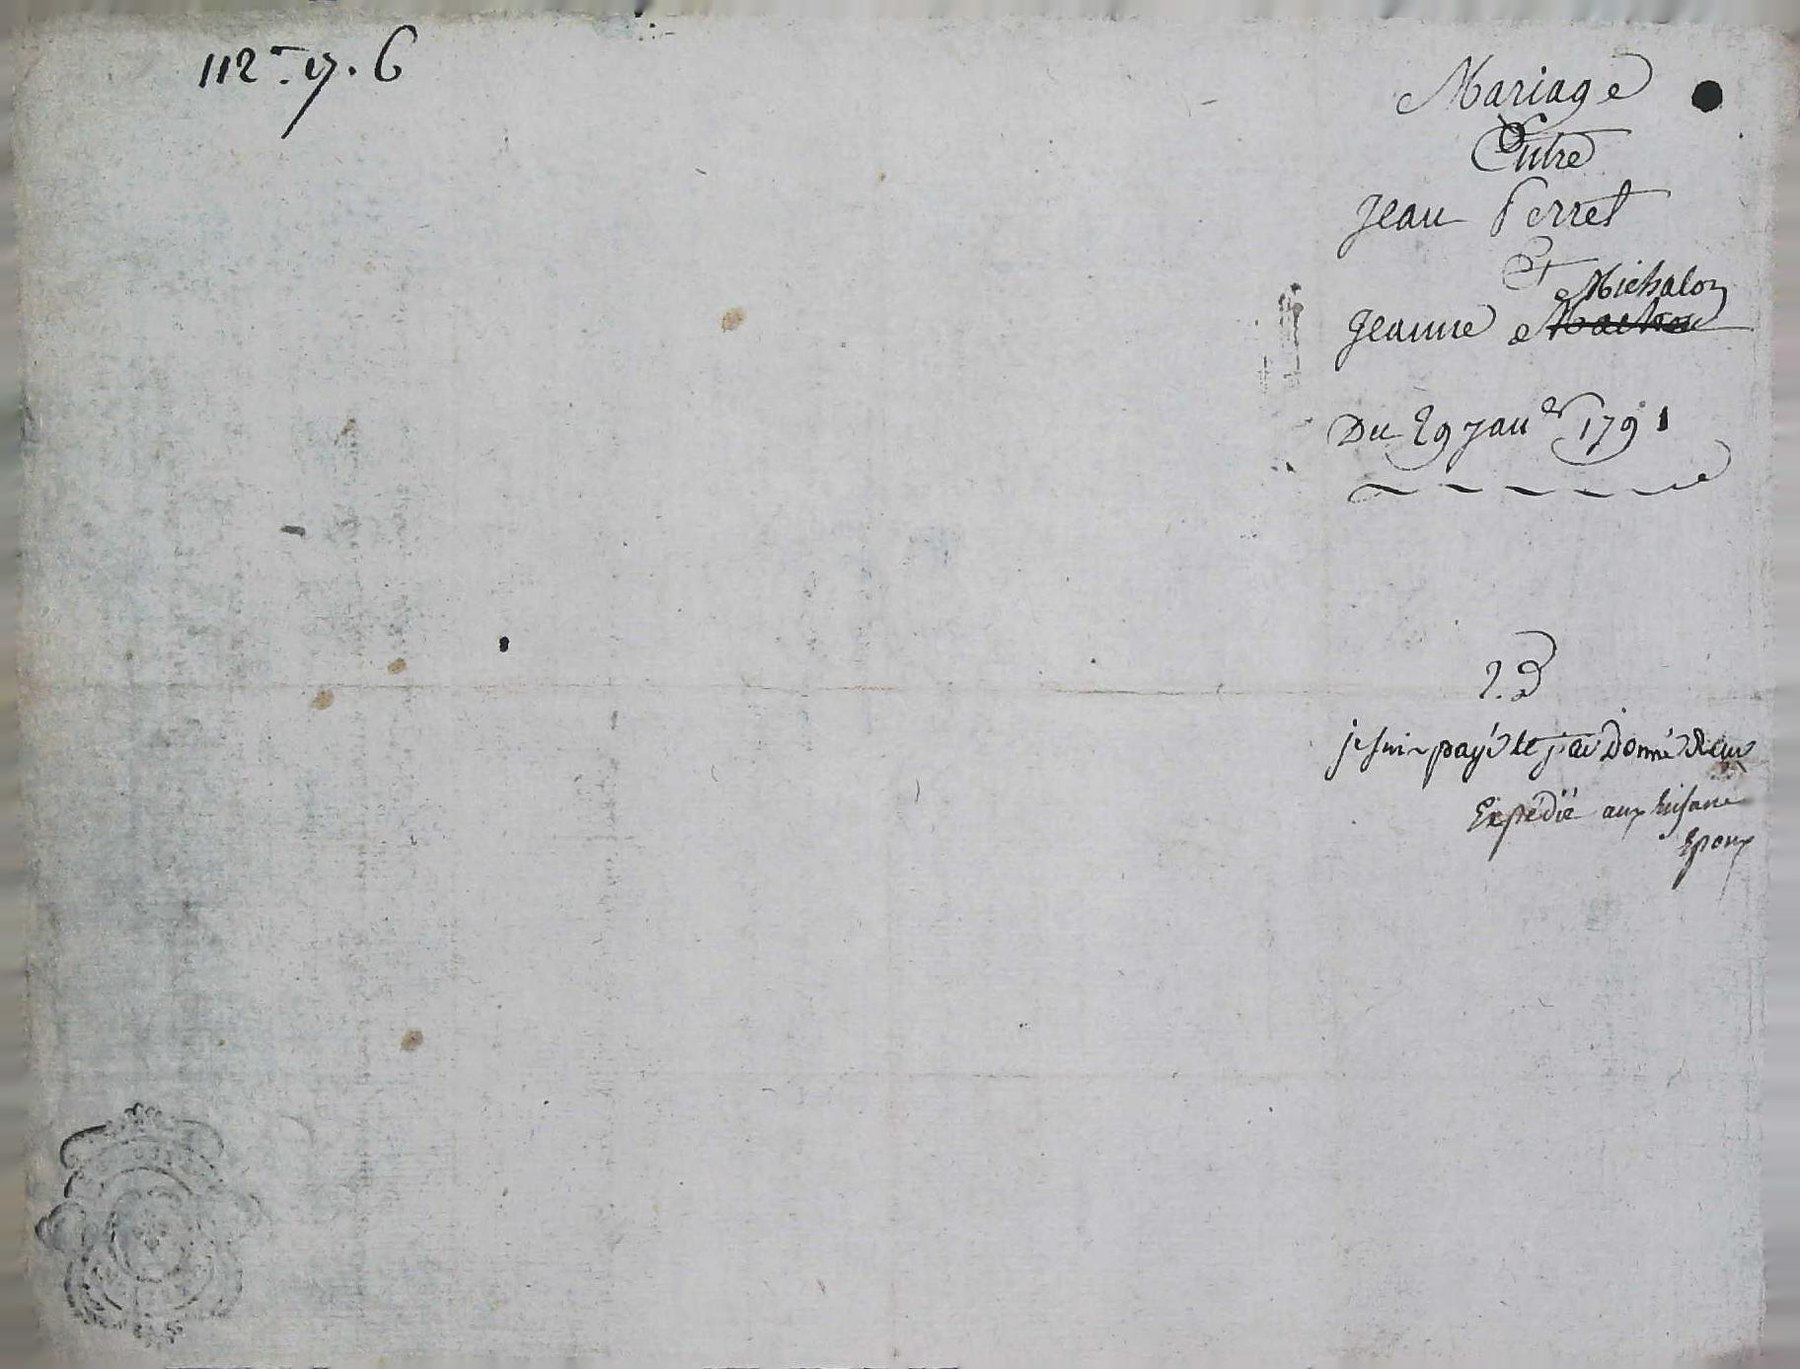 112 - 17 . 6
Mariage
Entre
jean Perret
Et
Michalon
jeanne
Du 29 janer 1791
je suis payé et j'ai Donné Deux
Expédié aux
Epoux